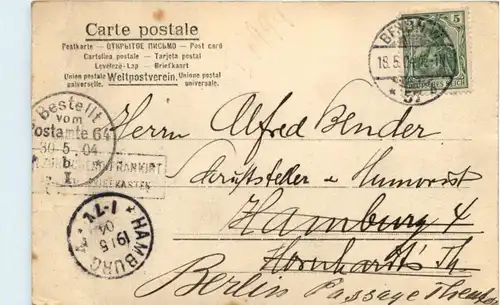 Carte postale
Postkarte — ОТКРЫТОЕ ПИСЬМО — Post card
Cartolina postale — Tarjeta postal
Levelező-Lap — Briefkaart
Union postale universelle. Weltpostverein. Unione postale universale.
5
DEUTSCHES REICH
18.5.04
Bestellt
vom
Postamte 64
30.5.04
b.
I
FRANKIRT
BRIEFKASTEN
Herrn Alfred Bender
Schriftsteller u Humorist
Hamburg 4
Hornhardt's Th
Berlin Passage Theater
HAMBURG
19.5
04
1-7N